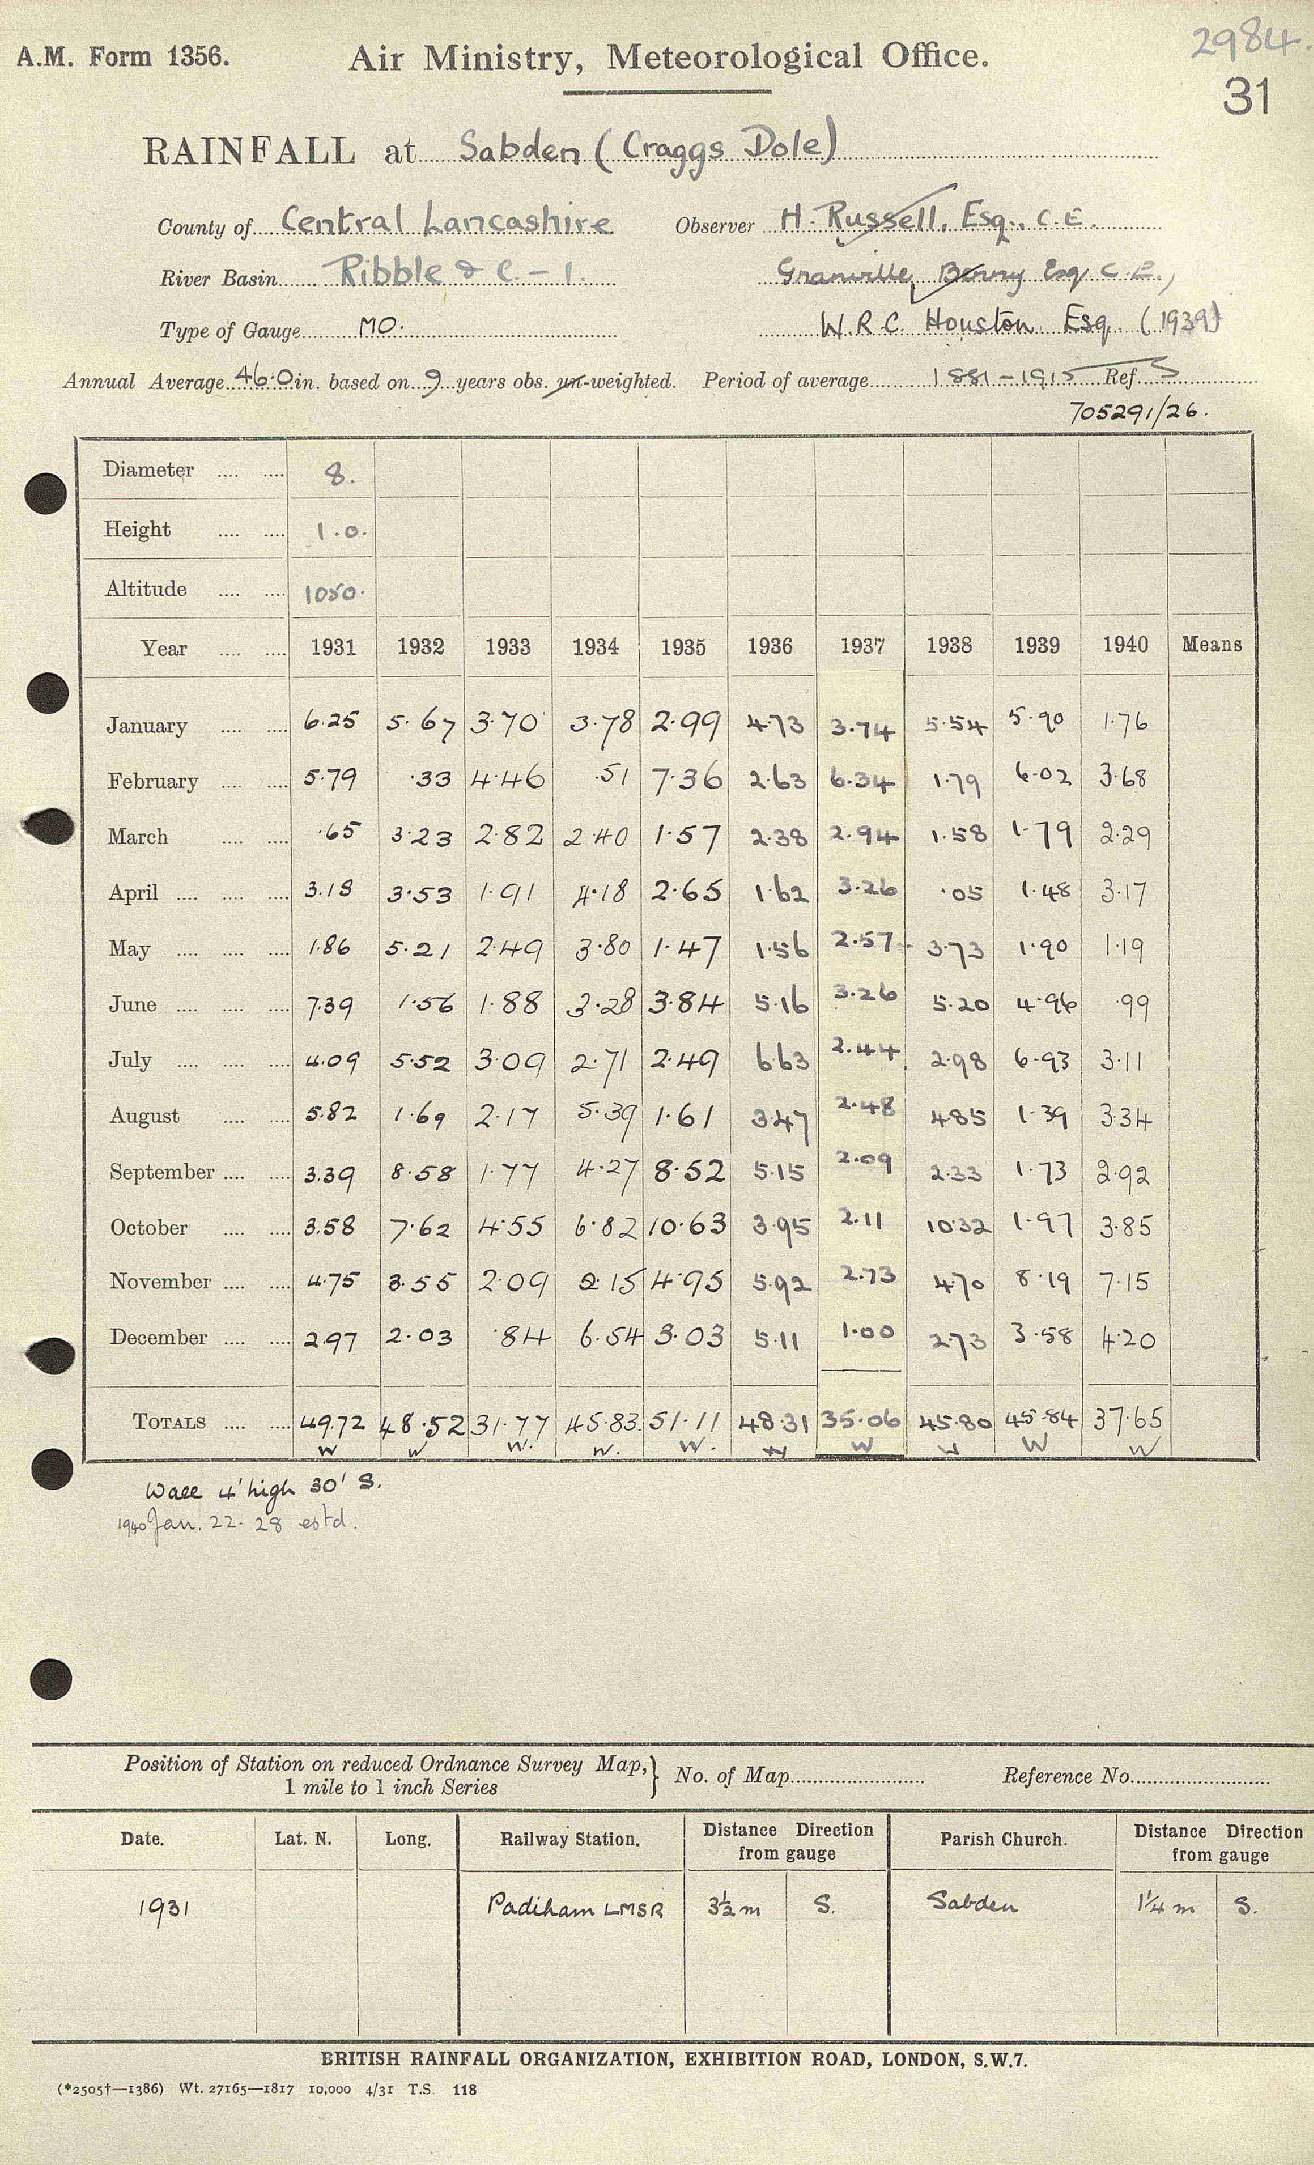 2984.
31
A.M. Form 1356. Air Ministry, Meteorological Office.
RAINFALL at Sabden (Craggs Dole)
County of Central Lancashire Observer H. Russell, Esq., C.E.
River Basin Ribble & C. - 1. Granville Berry Esq. C.E.,
Type of Gauge MO. W.R.C. Houston Esq. (1939)
Annual Average 46.0 in. based on 9 years obs. un-weighted. Period of average 1881-1915 Ref. S
705291/26.
Diameter .... .... 8.
Height .... .... 1.0.
Altitude .... .... 1050.
Year .... .... 1931 1932 1933 1934 1935 1936 1937 1938 1939 1940 Means
January .... .... 6.25 5.67 3.70 3.78 2.99 4.73 3.74 5.54 5.90 1.76
February .... .... 5.79 .33 4.46 .51 7.36 2.63 6.34 1.79 6.02 3.68
March .... .... .65 3.23 2.82 2.40 1.57 2.38 2.94 1.58 1.79 2.29
April .... .... .... 3.18 3.53 1.91 4.18 2.65 1.62 3.26 .05 1.48 3.17
May .... .... .... 1.86 5.21 2.49 3.80 1.47 1.56 2.57 3.73 1.90 1.19
June .... .... .... 7.39 1.56 1.88 3.28 3.84 5.16 3.26 5.20 4.96 .99
July .... .... .... 4.09 5.52 3.09 2.71 2.49 6.63 2.44 2.98 6.93 3.11
August .... .... 5.82 1.69 2.17 5.39 1.61 3.47 2.48 4.85 1.39 3.34
September .... .... 3.39 8.58 1.77 4.27 8.52 5.15 2.09 2.33 1.73 2.92
October .... .... 3.58 7.62 4.55 6.82 10.63 3.95 2.11 10.32 1.97 3.85
November .... .... 4.75 3.55 2.09 2.15 4.95 5.92 2.73 4.70 8.19 7.15
December .... .... 2.97 2.03 .84 6.54 3.03 5.11 1.00 2.73 3.58 4.20
TOTALS .... .... 49.72 48.52 31.77 45.83 51.11 48.31 35.06 45.80 45.84 37.65
W W W. W. W. W W W W W
Wall 4' high 30' S.
1940 Jan. 22-28 estd.
Position of Station on reduced Ordnance Survey Map, } No. of Map Reference No.
1 mile to 1 inch Series
Date. Lat. N. Long. Railway Station. Distance Direction from gauge Parish Church. Distance Direction from gauge
1931 Padiham LMSR 3½ m S. Sabden 1¼ m S.
BRITISH RAINFALL ORGANIZATION, EXHIBITION ROAD, LONDON, S.W.7.
(*2505†—1386) Wt. 27165—1817 10,000 4/31 T.S. 118